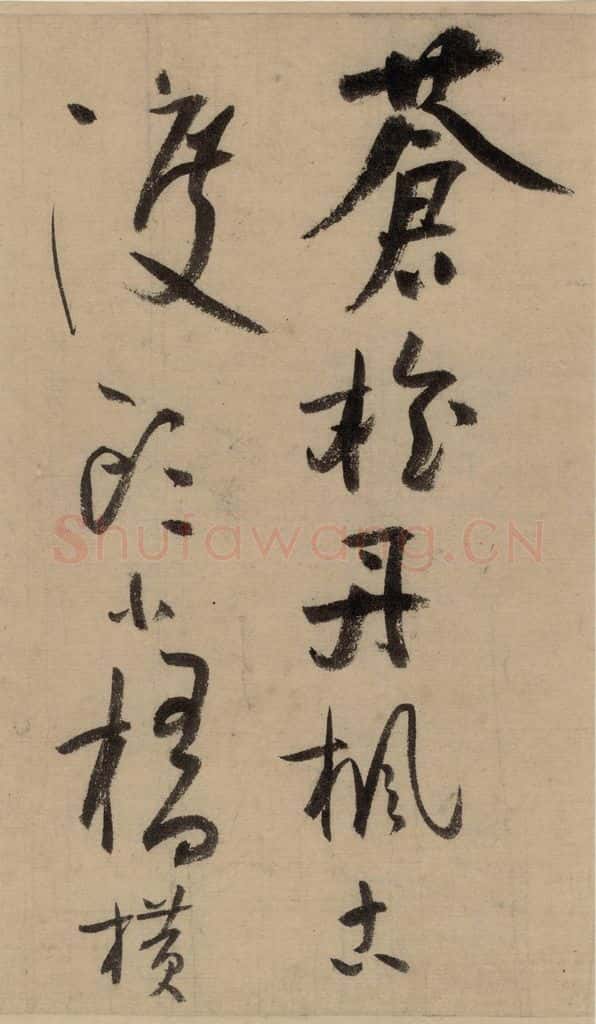 蒼檜丹楓古
渡頭小橋橫
Shufawang.CN